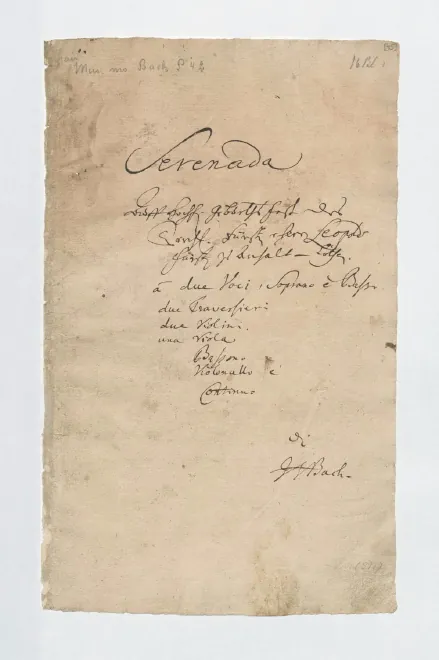 Mus. ms. Bach P 42
16 Bl:
Serenada
Auff Hoch. Gebuhrts Fest des
Fürst Herr Leopolds
Fürst zu Anhalt-Cöthen
à due Voci, Soprano è Basso
due Traversieri
due Violini
una Viola
Bassono
Violoncello è
Continuo
di
J S Bach